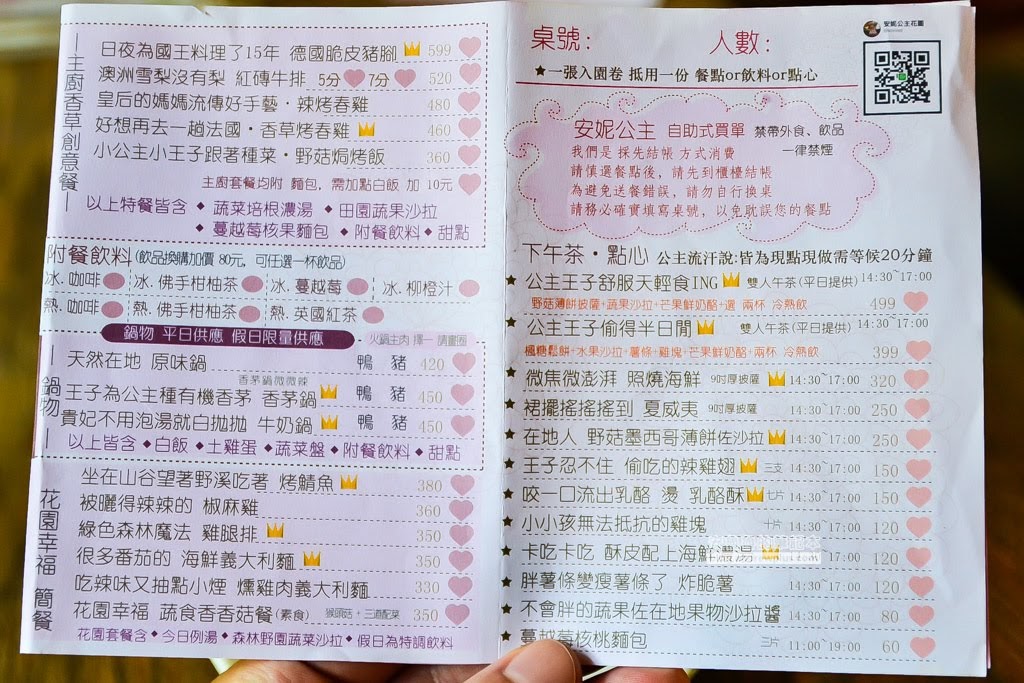 主廚香草創意餐
日夜為國王料理了15年 德國脆皮豬腳 599
澳洲雪梨沒有梨 紅磚牛排 5分 7分 520
皇后的媽媽流傳好手藝・辣烤春雞 480
好想再去一趟法國・香草烤春雞 460
小公主小王子跟著種菜・野菇焗烤飯 360
主廚套餐均附 麵包，需加點白飯 加 10元
以上特餐皆含 ◆ 蔬菜培根濃湯 ◆ 田園蔬果沙拉
◆ 蔓越莓核果麵包 ◆ 附餐飲料 ◆ 甜點
附餐飲料(飲品換購加價 80元，可任選一杯飲品)
冰. 咖啡 冰. 佛手柑柚茶 冰. 蔓越莓 冰. 柳橙汁
熱. 咖啡 熱. 佛手柑柚茶 熱. 英國紅茶
鍋物 平日供應 假日限量供應 火鍋主肉 擇一 請畫圈
鍋物
天然在地 原味鍋 鴨 豬 420
香茅鍋微微辣
王子為公主種有機香茅 香茅鍋 鴨 豬 450
貴妃不用泡湯就白拋拋 牛奶鍋 鴨 豬 450
以上皆含 ◆白飯 ◆土雞蛋 ◆蔬菜盤 ◆附餐飲料 ◆甜點
花園幸福 簡餐
坐在山谷望著野溪吃著 烤鯖魚 380
被曬得辣辣的 椒麻雞 360
綠色森林魔法 雞腿排 350
很多番茄的 海鮮義大利麵 350
吃辣味又抽點小煙 燻雞肉義大利麵 330
花園幸福 蔬食香香菇餐 (素食) 猴頭菇 + 三道配菜 350
花園套餐含 ◆ 今日例湯 ◆ 森林野園蔬菜沙拉 ◆ 假日為特調飲料
桌號： 人數：
安妮公主花園
★一張入園卷 抵用一份 餐點or飲料or點心
安妮公主 自助式買單 禁帶外食、飲品
我們是 採先結帳 方式消費 一律禁煙
請慎選餐點後，請先到櫃檯結帳
為避免送餐錯誤，請勿自行換桌
請務必確實填寫桌號，以免耽誤您的餐點
下午茶・點心 公主流汗說:皆為現點現做需等候20分鐘
★ 公主王子舒服天輕食ING 雙人午茶(平日提供) 14:30~17:00
野菇薄餅披薩+蔬果沙拉+芒果鮮奶酪+選 兩杯 冷熱飲 499
★ 公主王子偷得半日閒 雙人午茶(平日提供) 14:30~17:00
楓糖鬆餅+水果沙拉+薯條+雞塊+芒果鮮奶酪+兩杯 冷熱飲 399
★ 微焦微澎湃 照燒海鮮 9吋厚披薩 14:30~17:00 320
★ 裙擺搖搖搖到 夏威夷 9吋厚披薩 14:30~17:00 250
★ 在地人 野菇墨西哥薄餅佐沙拉 14:30~17:00 250
★ 王子忍不住 偷吃的辣雞翅 三支 14:30~17:00 150
★ 咬一口流出乳酪 燙 乳酪酥 七片 14:30~17:00 150
★ 小小孩無法抵抗的雞塊 十片 14:30~17:00 120
★ 卡吃卡吃 酥皮配上海鮮濃湯 17:00 120
★ 胖薯條變瘦薯條了 炸脆薯 14:30~17:00 120
★ 不會胖的蔬果佐在地果物沙拉醬 14:30~17:00 80
★ 蔓越莓核桃麵包 三片 11:00~19:00 60